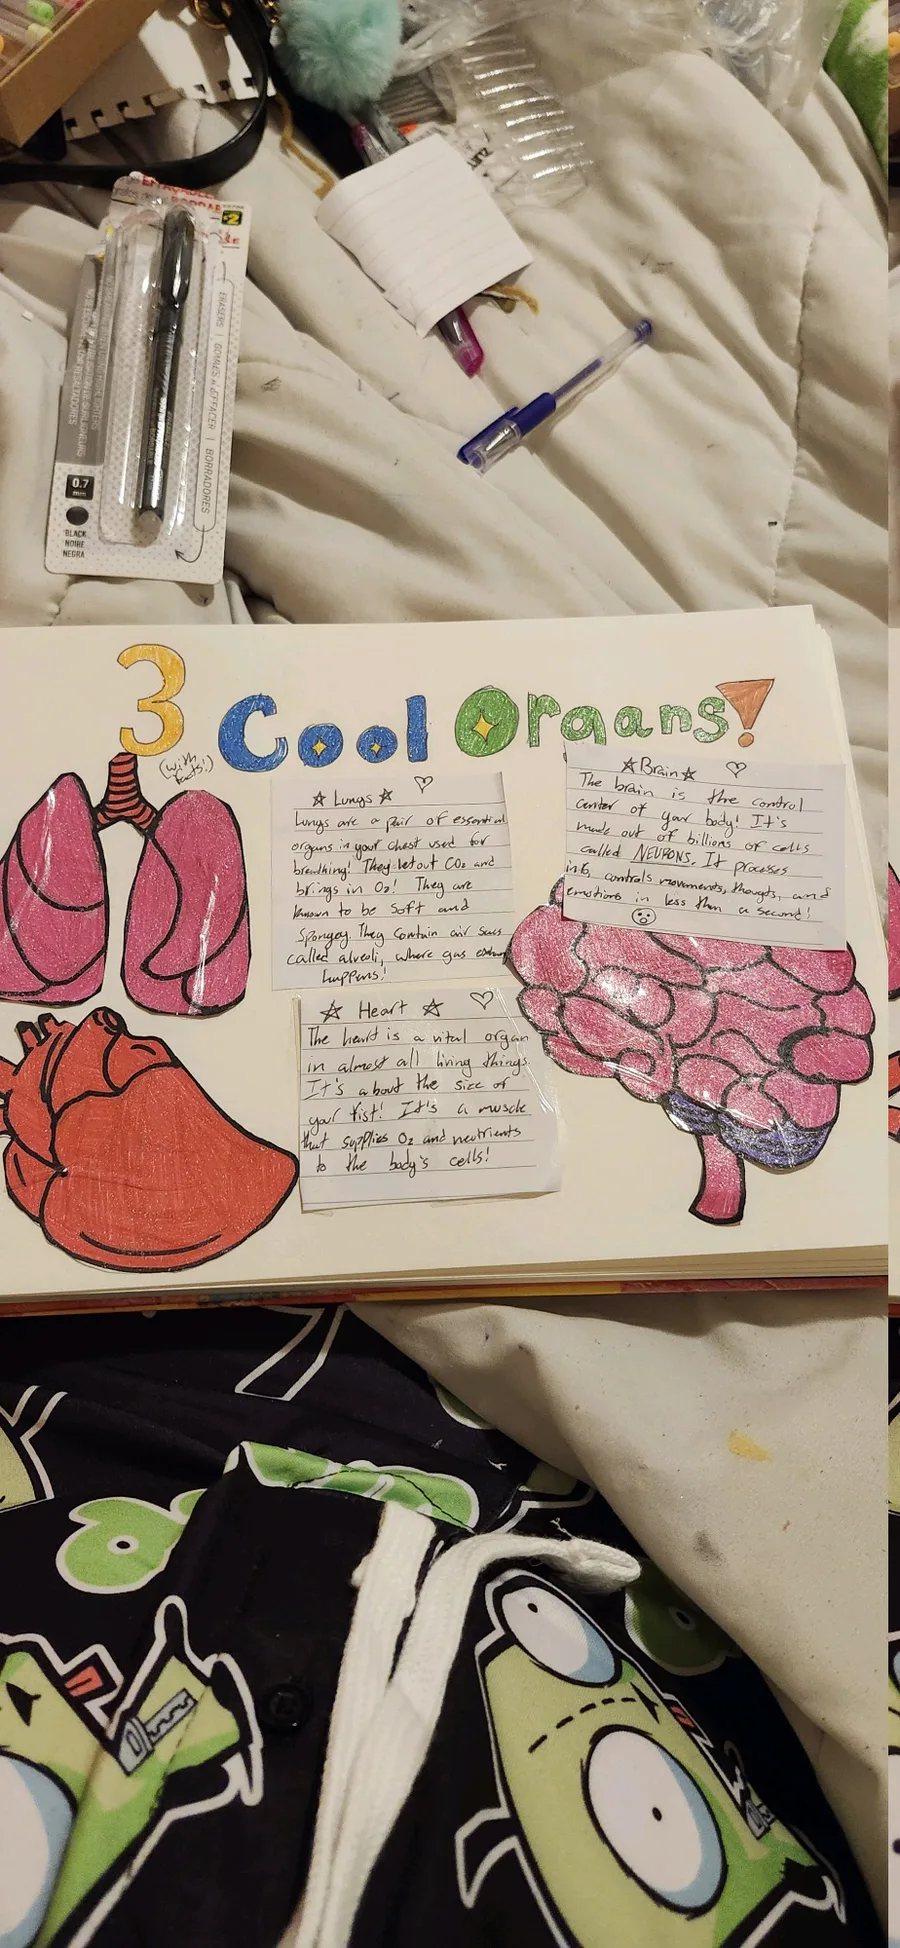 EFFAÇABLE
BORRAB
2
ERASERS | GOMES À EFFACER | BORRADORES
0.7
mm
BLACK
NOIRE
NEGRA
3 Cool Organs!
(with
facts!)
Lungs
Lungs are a pair of essential
organs in your chest used for
breathing! They let out CO2 and
brings in O2! They are
known to be soft and
spongey. They contain air sacs
called alveoli, where gas
happens!
Brain
The brain is the control
center of your body! It's
made out of billions of cells
called NEURONS. It processes
info, controls movements, thougts, and
emotions in less then a second!
Heart
The heart is a vital organ
in almost all living things.
It's about the size of
your fist! It's a muscle
that supplies O2 and neutrients
to the body's cells!